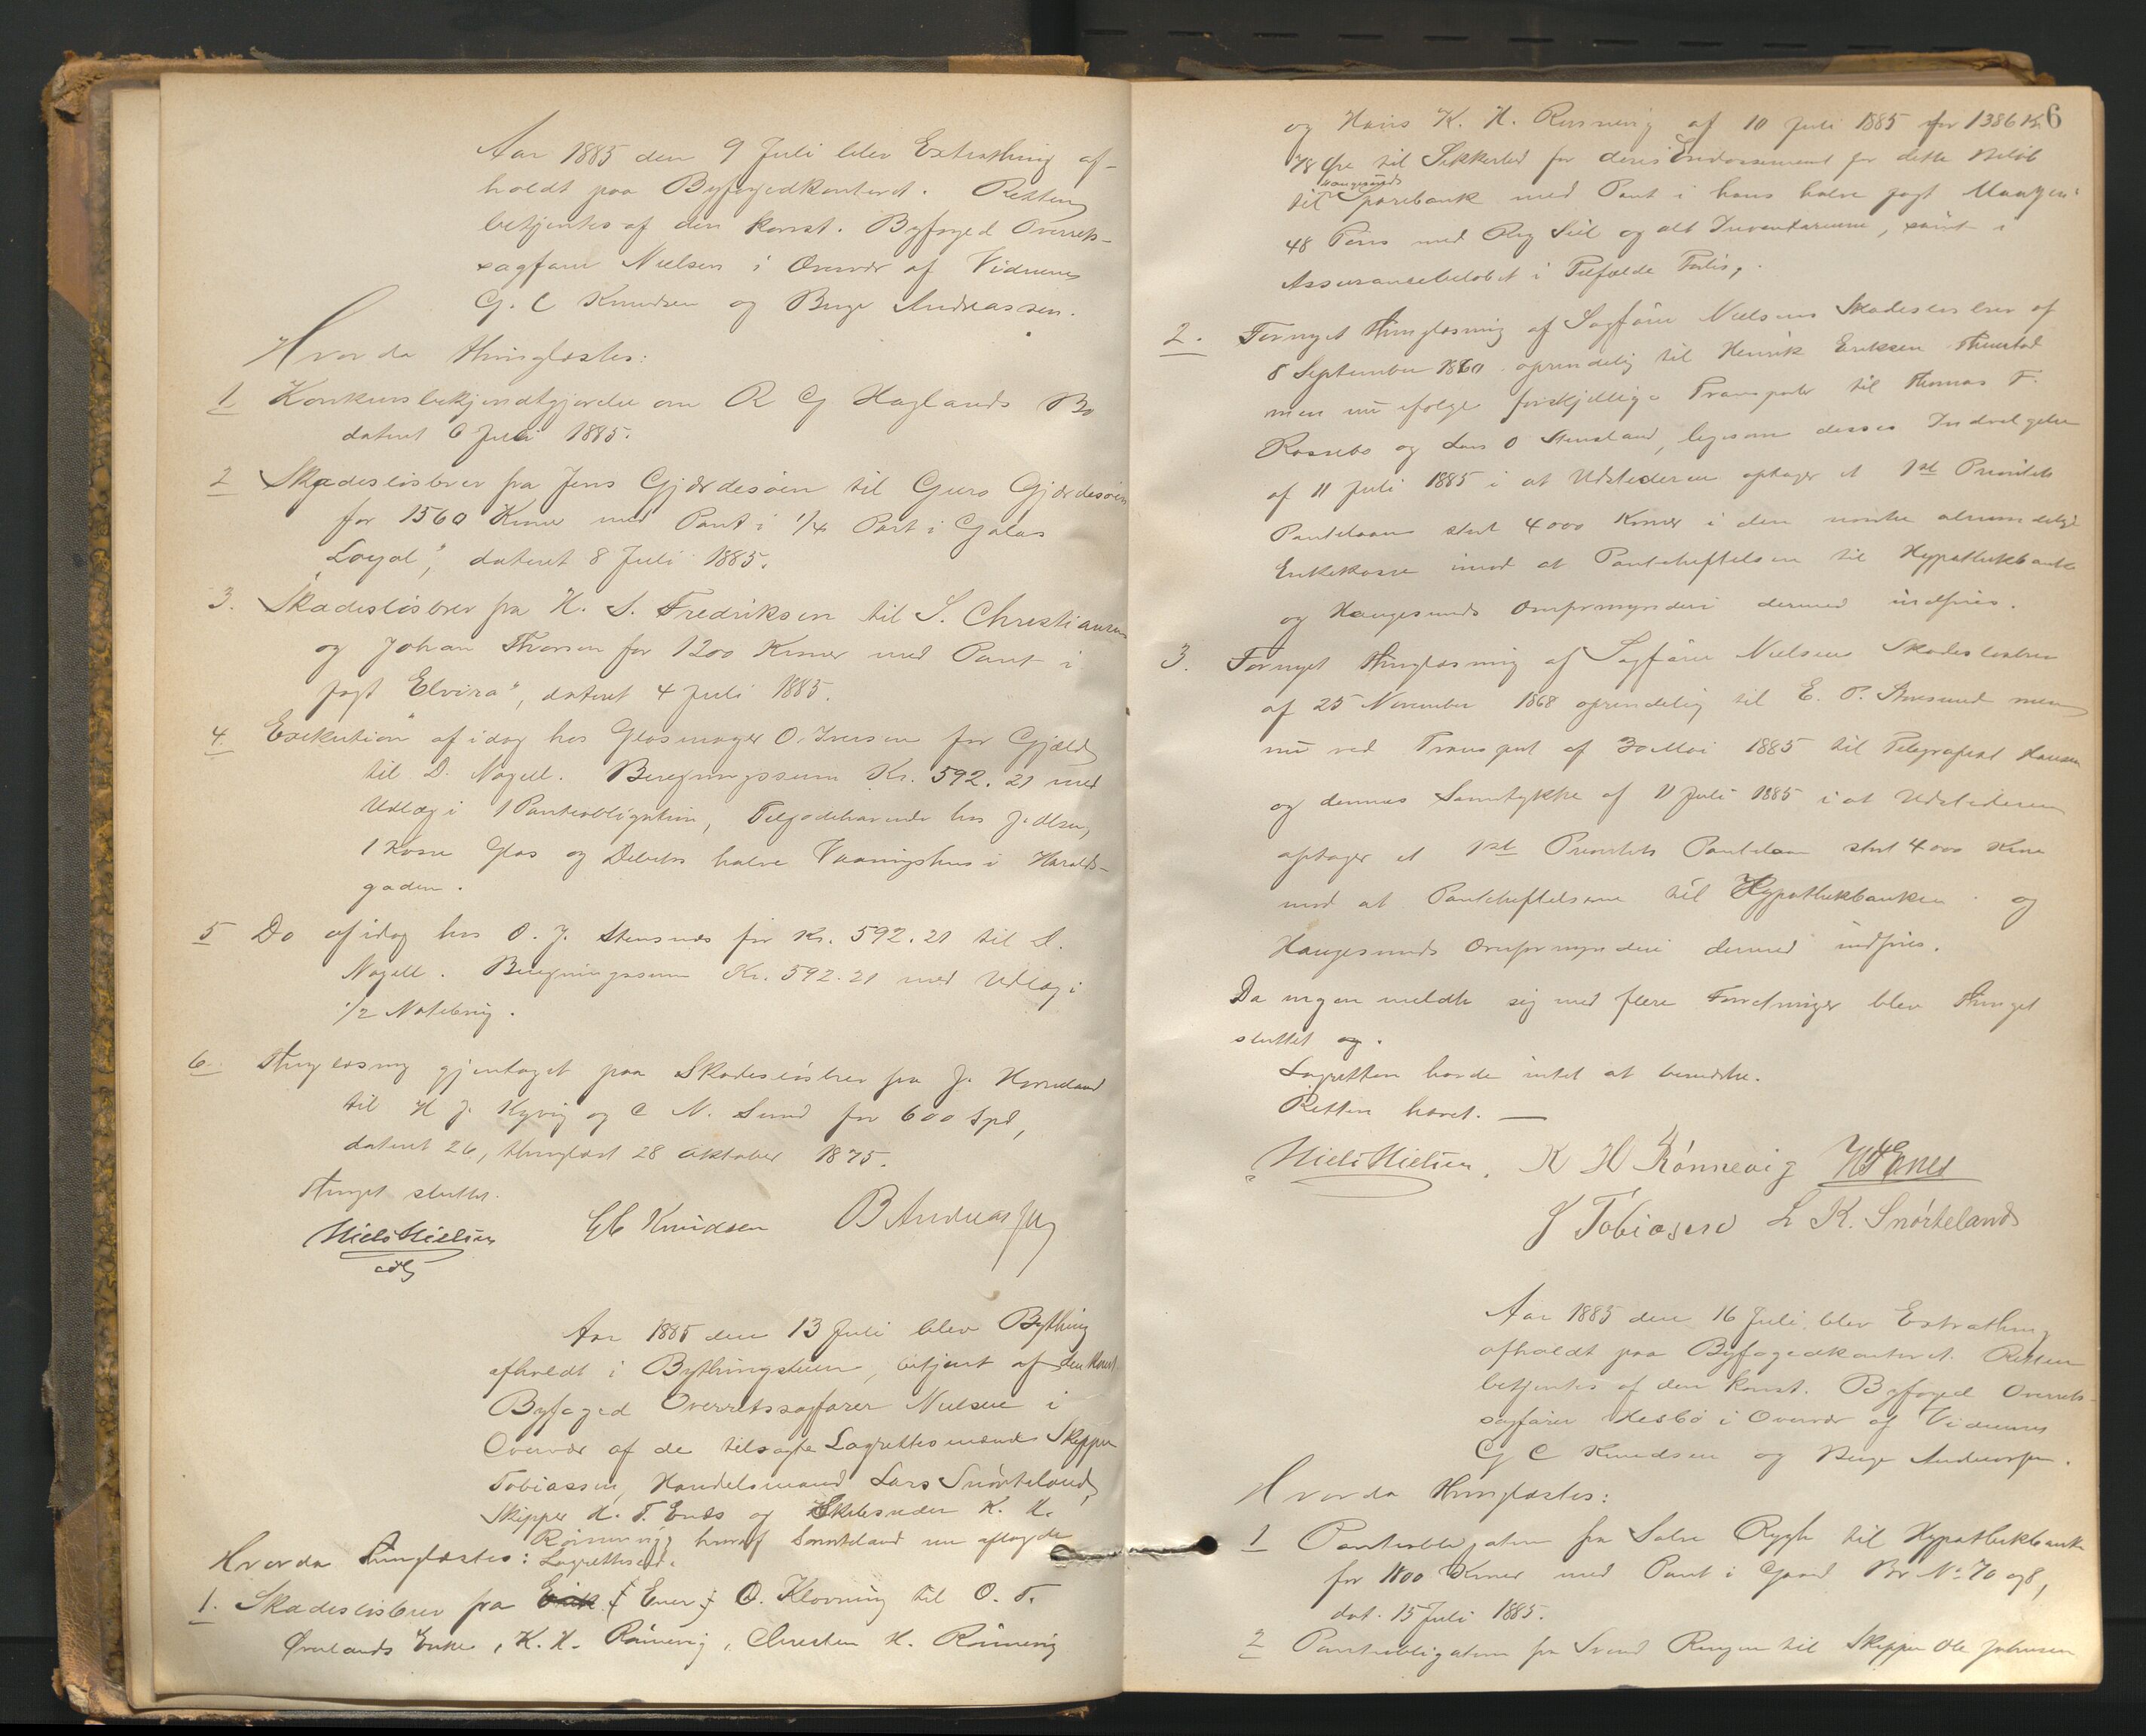 Aar 1885 den 9 Juli blev Extrathing af-
holdt paa Byfogedkontoret. Retten
betjentes af den konst. Byfoged Overrets-
sagfører Nielsen i Overvær af Vidnerne
G. C Knudsen og Berge Andreassen.
Hvorda thinglæstes:
1 Konkursbekjendtgjørelse om R G Haglands Bo
dateret 6 Juli 1885.
2 Skadesløsbrev fra Jens Gjærdesøen til Guro Gjærdesøen
for 1560 Kroner med Pant i 1/4 Part i Galas
"Loyal", dateret 8 Juli 1885.
3. Skadesløsbrev fra H. S. Fredriksen til S. Christiansen
og Johan Thorsen for 1200 Kroner med Pant i
Jagt "Elvira", dateret 4 Juli 1885.
4. Exekution af idag hos Glasmager O. Iversen for Gjæld
til D. Nagell. Beregningssum Kr. 592.21 med
Udlæg i 1 Panteobligation, Tilgodehavende hos J. Olsen,
1 Kasse Glas og Debitors halve Vaaningshus i Haralds-
gaden.
5 Do af idag hos O. J. Stensnæs for Kr. 592.21 til D.
Nagell. Beregningssum Kr. 592.21 med Udlæg i
1/2 Notebrug.
6. Thinglæsning gjentaget paa Skadesløsbrev fra J.
til H J. Kyvig og C N. Sund for 600 Spd,
dateret 26, thinglæst 28 Oktober 1875.
Thinget sluttet.
Niels Nielsen GC Knudsen B Andreassen
cst
Aar 1885 den 13 Juli blev Bything
afholdt i Bythingstuen, betjent af den konst.
Byfoged Overretssagfører Nielsen i
Overvær af de tilsagte Lagrettesmænd Skipper
Tobiassen, Handelsmand Lars Snørteland,
Skipper H. T. Enes og Skibsreder K. H.
Rönnevig, hvoraf Snørteland nu aflagde
Hvorda thinglæstes: Lagrettesed.
1. Skadesløsbrev fra Erik ( Ener ) O. Klovning til O. T.
Øvrelands Enke, K. H. Rönnevig, Chresten H. Rönnevig
6
og Hans K. H. Rönnevig af 10 Juli 1885 for 1386 Kr
78 Øre til Sikkerhed for deres Endossement for dette Beløb
til Haugesunds Sparebank med Pant i hans halve Jagt
48 Tons med Rig Seil og alt Inventarium, samt i
Assurancebeløbet i Tilfælde Forlis.
2. Fornyet thinglæsning af Sagfører Nielsens Skadesløsbrev af
8 September 1860 oprindelig til Henrik Eriksen
men nu ifølge forskjellige Transporter til Thomas T.
Rossebø og Lars O Stensland, ligesom disses Indvilgelse
af 11 Juli 1885 i at Udstederen optager et 1ste Prioritets
Pantelaan stort 4000 Kroner i den norske almindelige
Enkekasse imod at Pantehæftelserne til Hypothekbanken
og Haugesunds Overformynderi dermed indfries.
3. Fornyet thinglæsning af Sagfører Nielsens Skadesløsbrev
af 25 November 1868 oprindelig til E. P. Aaresund men
nu ved Transport af 30 Mai 1885 til Telegrafist Hansen
og dennes Samtykke af 11 Juli 1885 i at Udstederen
optager et 1ste Prioritets Pantelaan stort 4000 Kroner
mod at Pantehæftelserne til Hypothekbanken og
Haugesunds Overformynderi dermed indfries.
Da ingen meldte sig med flere Forretninger blev thinget
sluttet og.
Lagretten havde intet at bemærke.
Retten hævet. —
Niels Nielsen. K H Rönnevig HTEnes
J Tobiasen L K. Snørteland
Aar 1885 den 16 Juli blev Extrathing
afholdt paa Byfogedkontoret. Retten
betjentes af den konst. Byfoged Overrets-
sagfører Hesbö i Overvær af Vidnerne
G C Knudsen og Berge Andreassen.
Hvorda thinglæstes:
1 Panteobligation fra Salve Rygh til Hypothekbanken
for 1800 Kroner med Pant i Gaard Br No 70 og 8,
dat. 15 Juli 1885.
2 Panteobligation fra Svend til Skipper Ole Johnsen